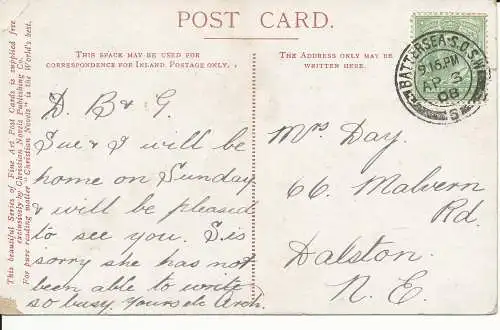 POST CARD.
THIS SPACE MAY BE USED FOR
CORRESPONDENCE FOR INLAND POSTAGE ONLY.
THE ADDRESS ONLY MAY BE
WRITTEN HERE.
This beautiful Series of Fine Art Post Cards is supplied free
exclusively by Christian Novels Publishing Co.
For pure reading matter "Christian Novels" is the World's best.
BATTERSEA S.O.S.W.
9.15.PM
AP 3
08
S
D. B & G.
Sue & I will be
home on Sunday
& will be pleased
to see you. S. is
sorry she has not
been able to write
so busy. Yours etc Arch.
Mrs Day.
66. Malvern
Rd.
Dalston.
N. E.